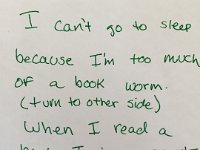 I can't go to sleep
because I'm too much
of a book worm.
(turn to other side)
When I read a